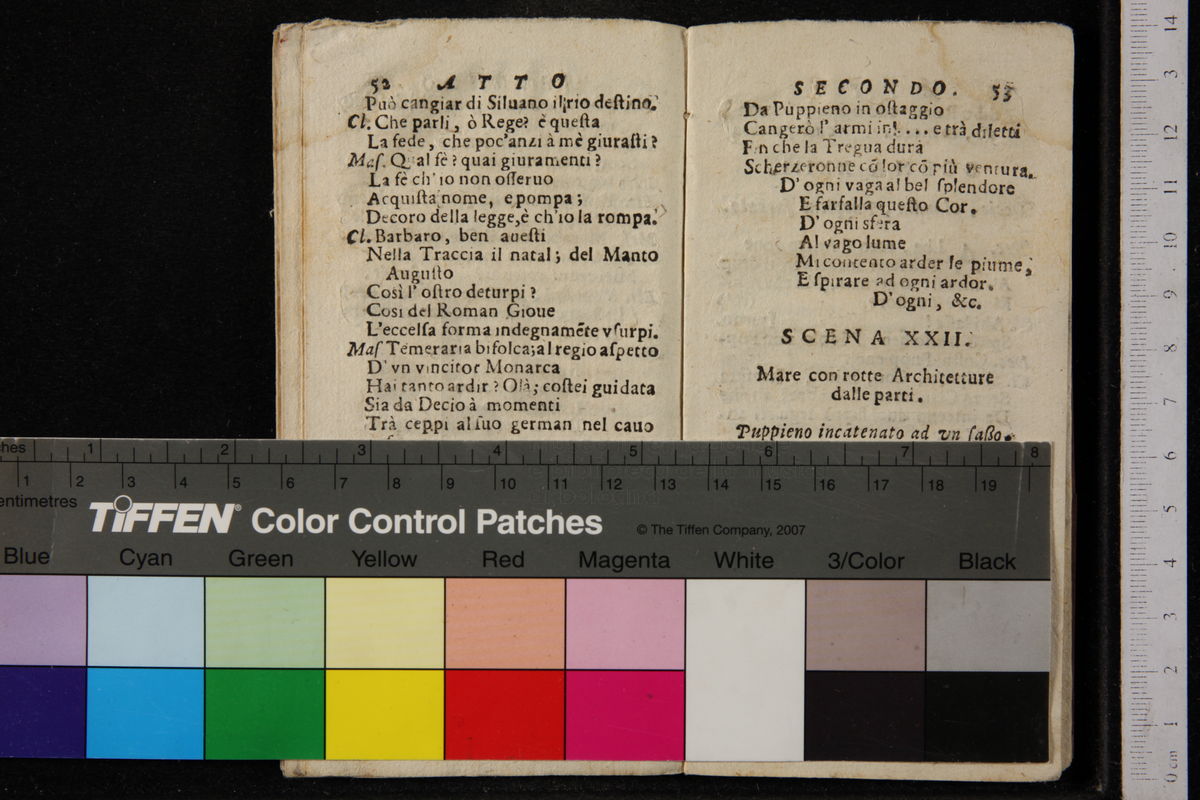 52 ATTO
Può cangiar di Siluano il rio destino.
Cl. Che parli, ò Rege? è questa
La fede, che poc'anzi à mè giurasti?
Mas. Qual fè? quai giuramenti?
La fè ch'io non osseruo
Acquista nome, e pompa;
Decoro della legge, è ch'io la rompa.
Cl. Barbaro, ben auesti
Nella Traccia il natal; del Manto
Augusto
Così l'ostro deturpi?
Cosi del Roman Gioue
L'eccelsa forma indegnamẽte vsurpi.
Mas Temeraria bifolca; al regio aspetto
D'vn vincitor Monarca
Hai tanto ardir? Olà; costei guidata
Sia da Decio à momenti
Trà ceppi al suo german nel cauo
SECONDO. 53
Da Puppieno in ostaggio
Cangerò l'armi in .... e trà diletti
Fin che la Tregua dura
Scherzeronne cõ lor cõ più ventura.
D'ogni vaga al bel splendore
E farfalla questo Cor.
D'ogni sfera
Al vago lume
Mi contento arder le piume,
E spirare ad ogni ardor.
D'ogni, &c.
SCENA XXII.
Mare con rotte Architetture
dalle parti.
Puppieno incatenato ad vn sasso.
ches 1 2 3 4 5 6 7 8
1 2 3 4 5 6 7 8 9 10 11 12 13 14 15 16 17 18 19
entimetres
TIFFEN® Color Control Patches © The Tiffen Company, 2007
Blue Cyan Green Yellow Red Magenta White 3/Color Black
0 cm 1 2 3 4 5 6 7 8 9 10 11 12 3 14